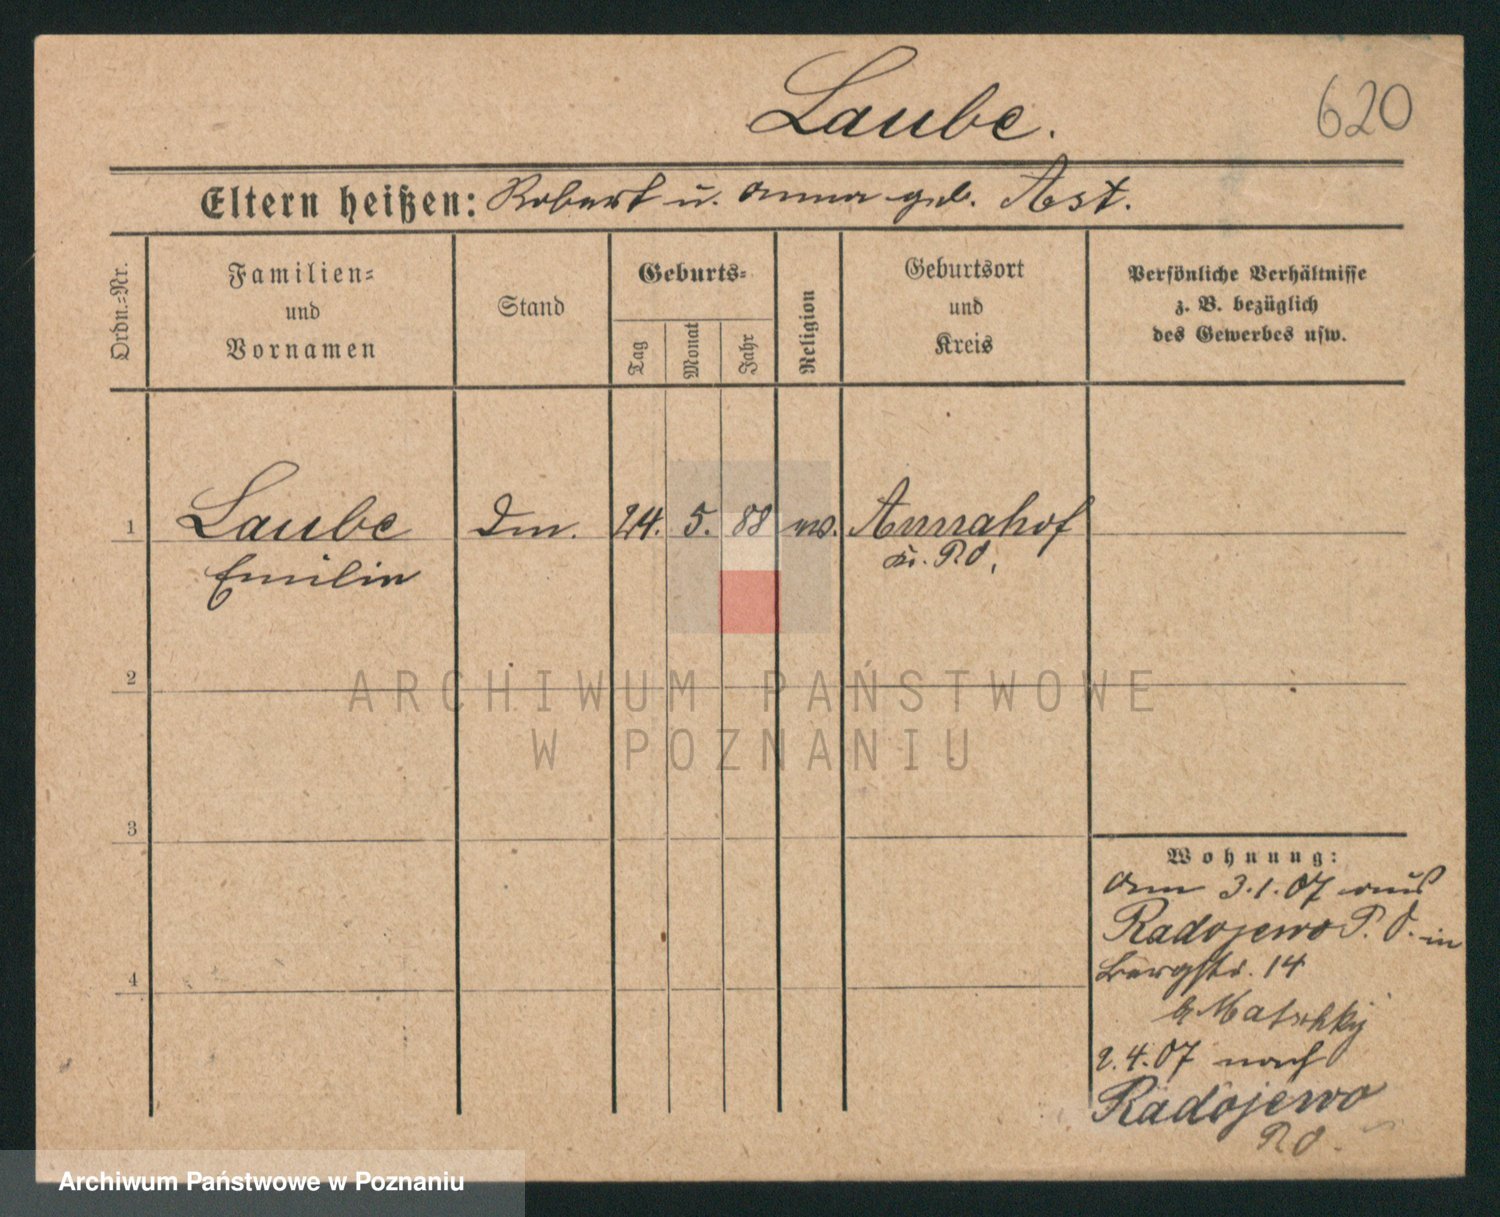 Laube.
620
Eltern heißen: Robert u. Anna geb. Ast.
Ordn.=Nr.
Familien=
und
Vornamen
Stand
Geburts=
Tag
Monat
Jahr
Religion
Geburtsort
und
Kreis
Persönliche Verhältnisse
z. B. bezüglich
des Gewerbes usw.
1
Laube
24. 5. 88
Annahof
Emilie
Kr. P.O.
2
ARCHIWUM PAŃSTWOWE
W POZNANIU
3
4
Wohnung:
Am 3.1.07 aus
Radojewo P. O. in
Bergstr. 14
b. Matschky
2.4.07 nach
Radojewo
P.O.
Archiwum Państwowe w Poznaniu